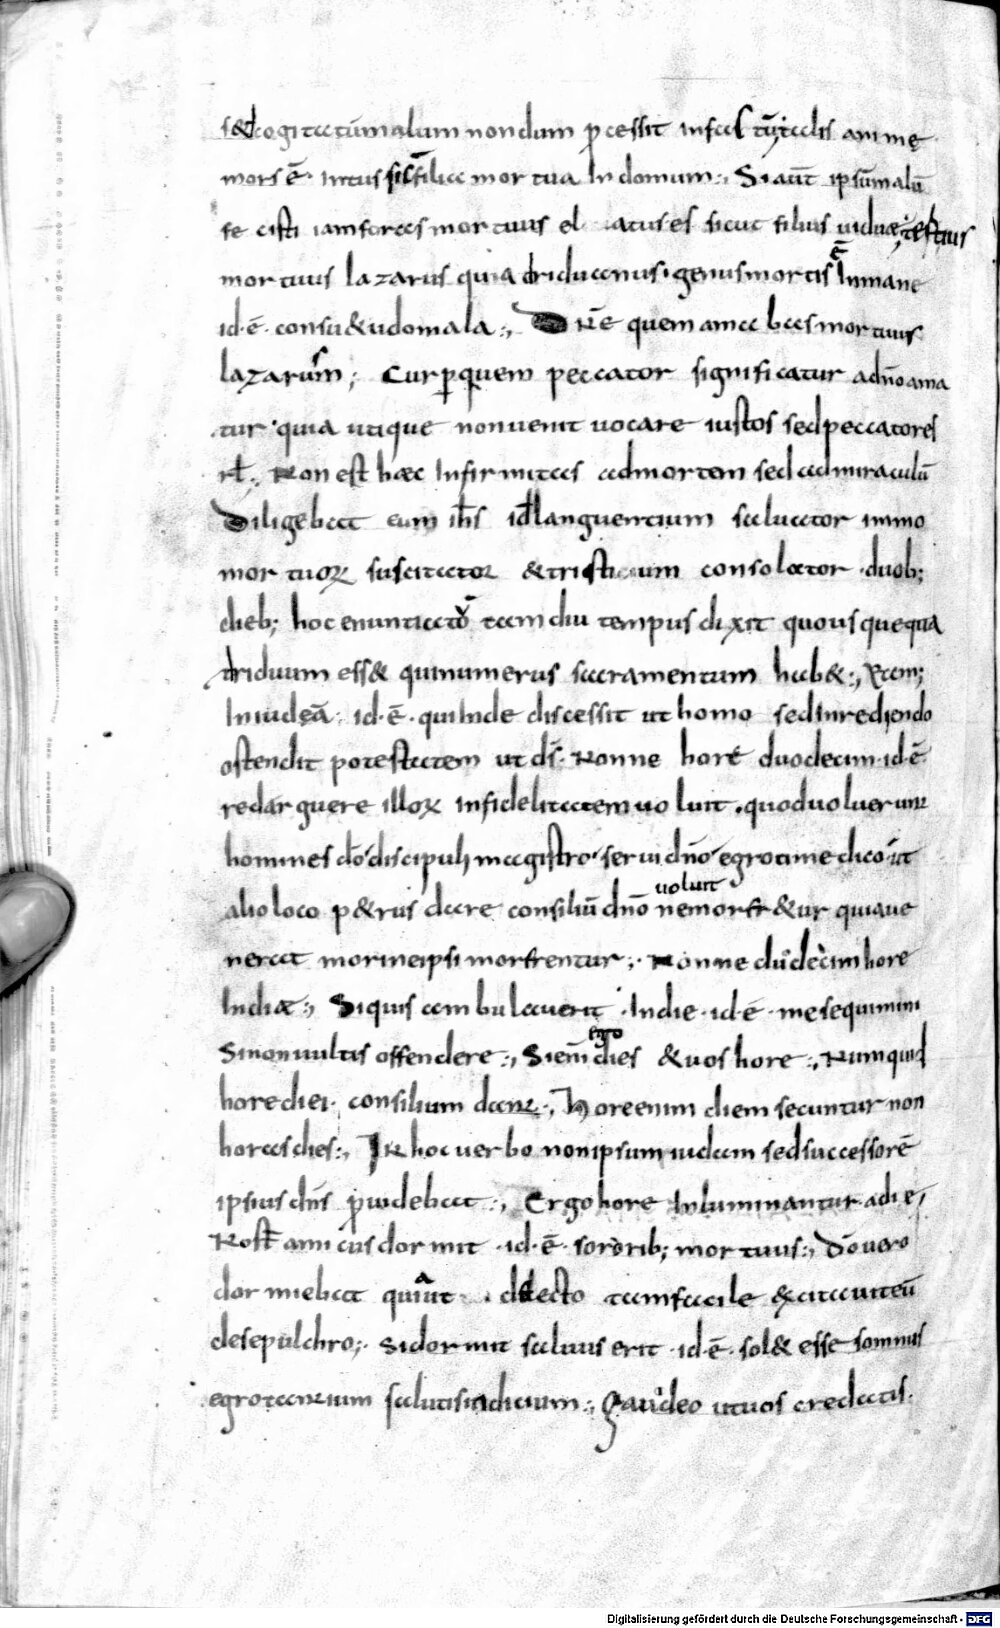 s& cogitatum malum nondum p̄cessit in fac tū talis anime
mors ē intus sic̄ filia mortua In domum:, Si aūt ipsūm malū
fecisti iam foras mortuus elatus es sicut filius uiduae, tertius
mortuus lazarus quia triduanus . genus mortis ē Inmane
id·ē· consu&udo mala:, DNE quem amabas mortuus
lazarum; Cur p̱ quem peccator significatur a dn̄o ama
tur· quia utique non uenit uocare iustos sed peccatores
rł:, Non est haec Infirmitas ad mortem sed ad miraculū
Diligebat eum ihs id languentium saluator immo
mortuoꝝ suscitator & tristium consolator· duob;
dieb; hoc enuntiat tam diu tempus dixit quo usque qua
triduum ess& qui numerus sacramentum hab&:,
In iudeā· id·ē· qui Inde discessit ut homo sed In rediendo
ostendit potestatem ut dś· Nonne hore duodecim· id·ē·
redarguere illoꝝ infidelitatem uoluit· quod uoluerunt
homines dō discipuli magistro serui dn̄o egroti medico· ut
alio loco p&rus dare consilium dn̄o uoluit ne morer&ur qui aue
nerat mori ne ipsi morerentur:· Nonne duodecim hore
In diae:, Si quis ambulauerit· In die· id·ē· me sequimini
Si non uultis offendere:, Si enī ergo dies & uos hore:, Numquid
hore diei· consilium dant·, Hore enim diem secuntur non
horas dies:, IN hoc uerbo non ipsum iudam sed successorē
ipsius dn̄s p̄uidebat:, Ergo hore Inluminantur a die,
Nosť amicus dormit· id·ē· sororib; mortuus:, dō uero
dormiebat quia ut tam facile excitauit eū
de sepulchro;· Si dormit saluus erit· id·ē· sol& esse somnus
egrotantium salutis indicium:, Gaudeo ut uos credatis·
Digitalisierung gefördert durch die Deutsche Forschungsgemeinschaft - DFG